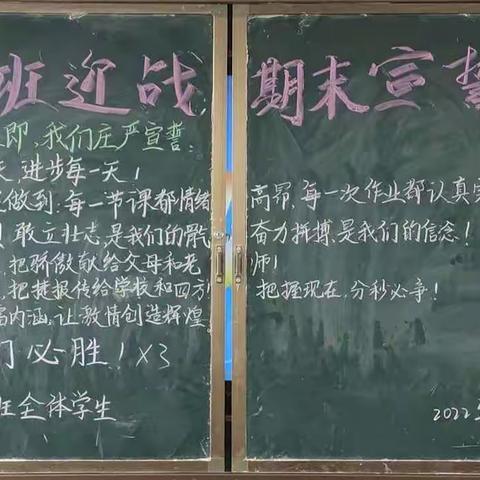 班迎战 期末宣誓
即,我们庄严宣誓:
天,进步每一天!
做到:每一节课都情绪高昂,每一次作业都认真完
!敢立壮志,是我们的骨气 奋力拼搏,是我们的信念!
,把骄傲献给父母和老师!
,把捷报传给学校和四方! 把握现在,分秒必争!
内涵,让激情创造辉煌
们必胜!×3
班全体学生 2022